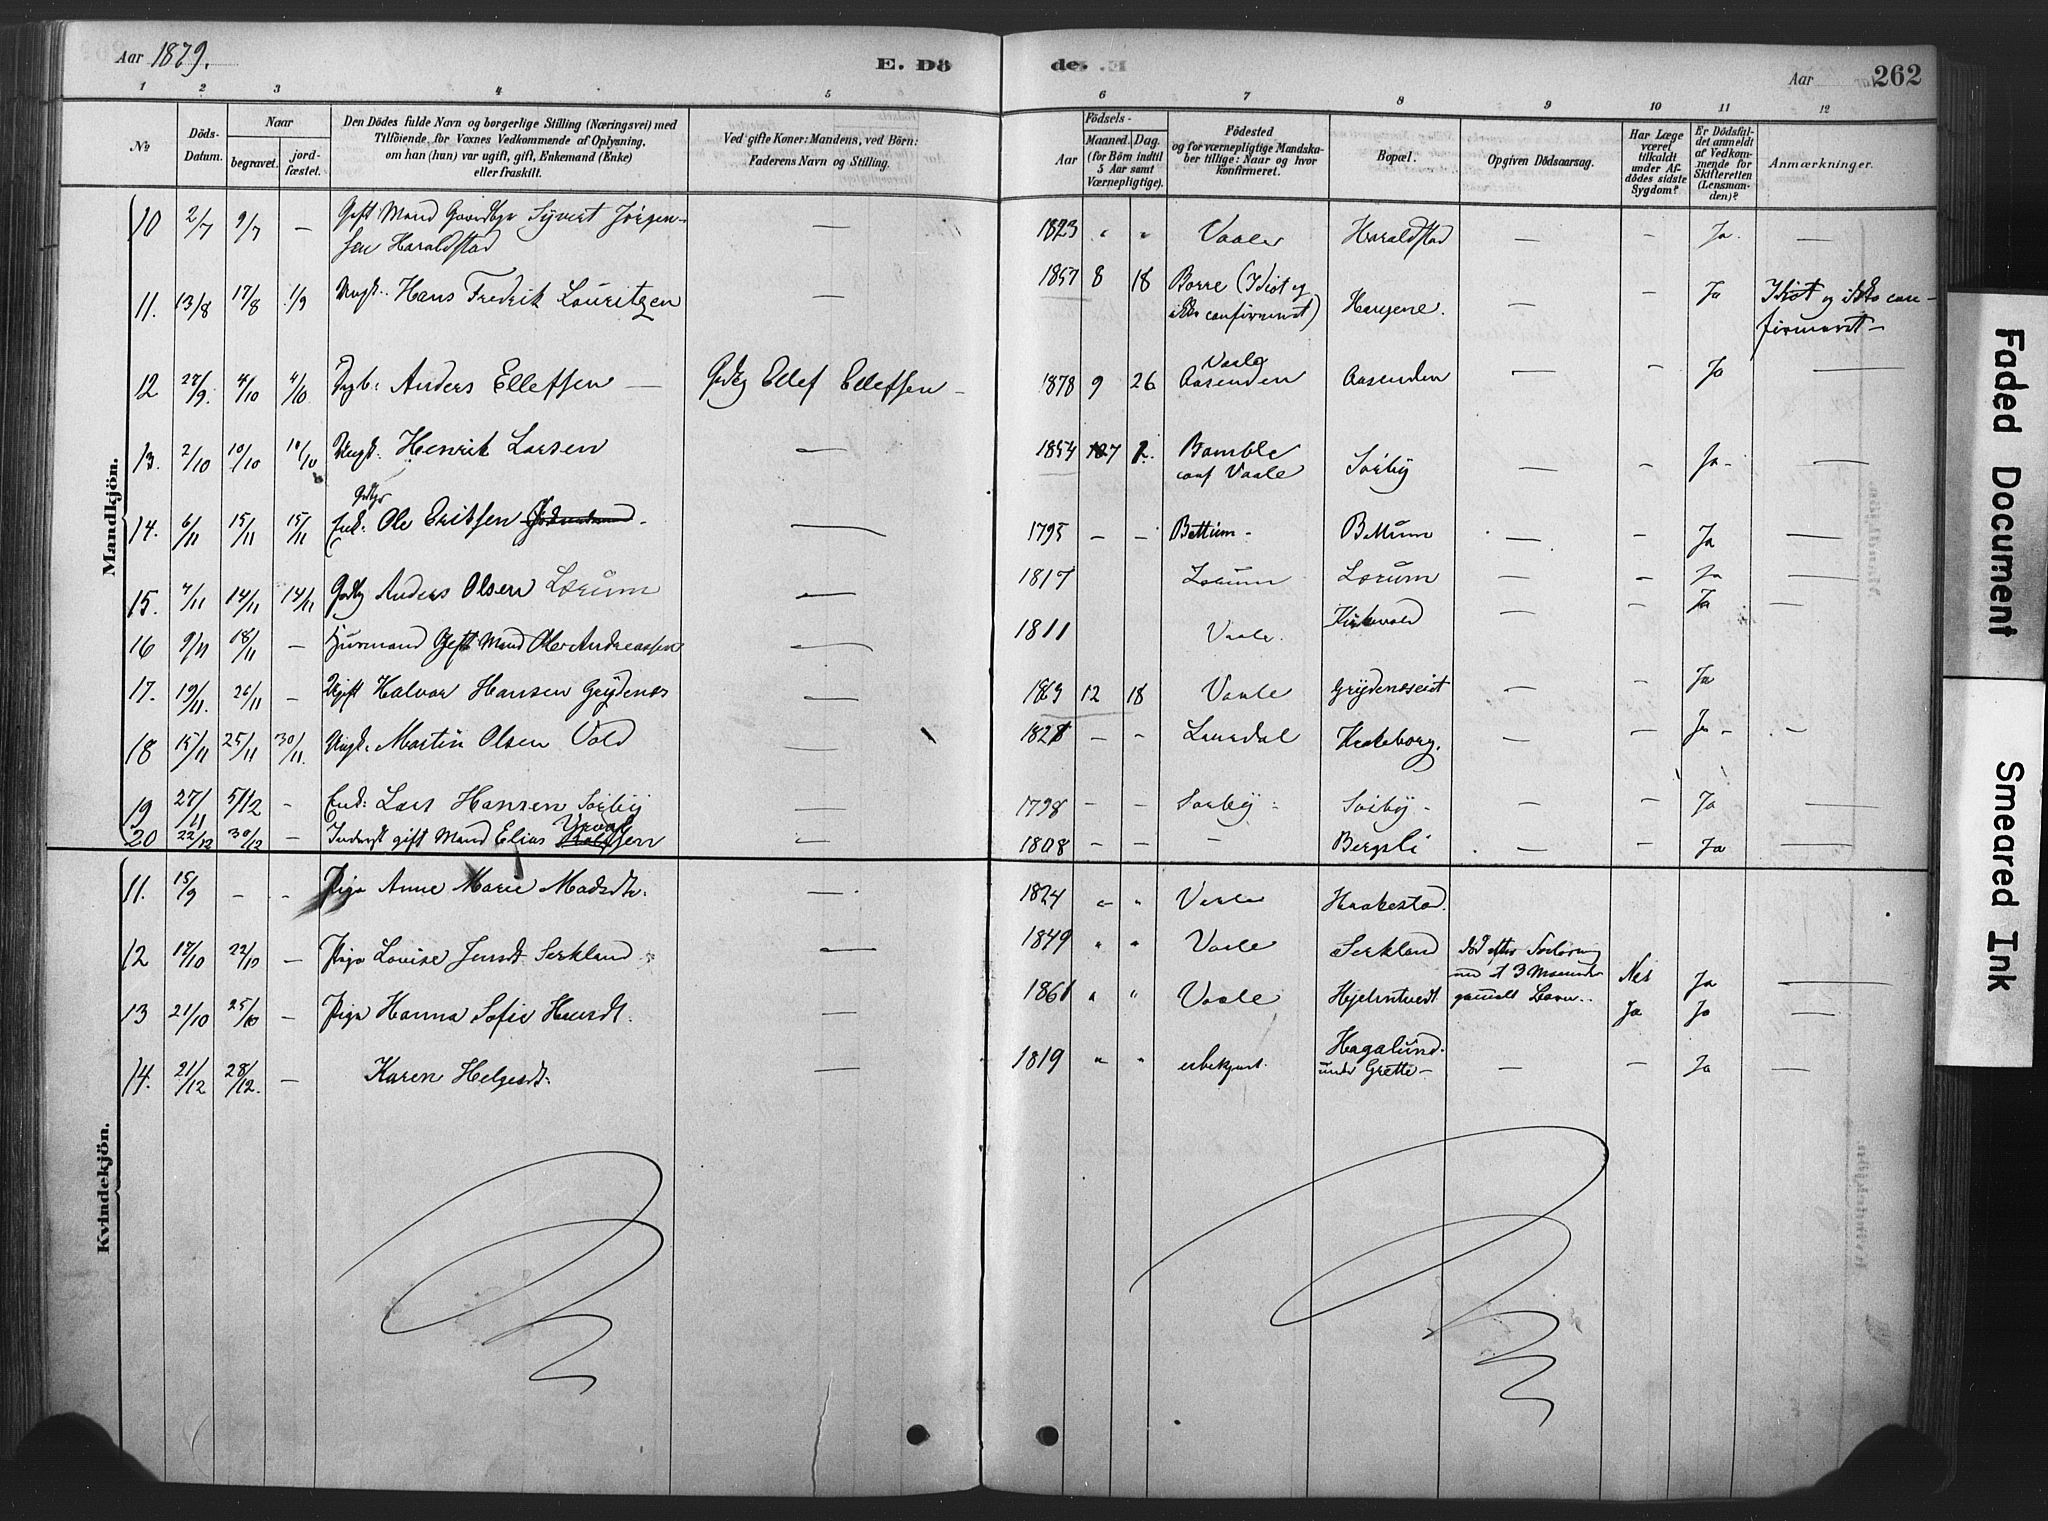 Aar 1879.
E. Dö
de.
Aar 262
1 2 3 4 5 6 7 8 9 10 11 12
No
Döds-Datum.
Naar
begravet.
jord-fæstet.
Den Dödes fulde Navn og borgerlige Stilling (Næringsvei) med
Tilföiende, for Voxnes Vedkommende af Oplysning,
om han (hun) var ugift, gift, Enkemand (Enke)
eller fraskilt.
Ved gifte Koner: Mandens, ved Börn:
Faderens Navn og Stilling.
Födsels-
Aar
Maaned. Dag.
(for Börn indtil
5 Aar samt
Værnepligtige).
Födested
og for værnepligtige Mandska-
ber tillige: Naar og hvor
konfirmeret.
Bopæl.
Opgiven Dödsaarsag.
Har Læge
været
tilkaldt
under Af-
dödes sidste
Sygdom?
Er Dödsfal-
det anmeldt
af Vedkom-
mende for
Skifteretten
(Lensman-
den)?
Anmærkninger.
Mandkjön.
10 2/7 9/7 — Gift Mand Gaardbgr Syvert Jörgen-
sen Haraldstad — 1823 " " Vaale Haraldstad — — Ja. —
11. 13/8 17/8 1/9 Ungk. Hans Fredrik Lauritzen — 1857 8 18 Borre (Idiot og
ikke confirmeret) — — Ja Idiot og ikke con-
firmeret —
12 27/9. 4/10 4/10 Anders Ellefsen — Ellef Ellefsen — 1878 9 26 Vaale
Aasenden Aasenden — — Ja —
13. 2/10 10/10 10/10 Ungk. Henrik Larsen — 1854 7 2. Bamble
conf Vaale Sörby — — Ja —
14. 6/11 15/11 15/11 Enk. Ole Eriksen — 1795 — — Bettum — Bettum — — Ja —
15. 7/11 14/11 14/11 Anders Olsen Lorum — 1817 Lorum Lorum — — Ja —
16 9/11 18/11 — Huusmand Gift Mand Ole Andreassen — 1811 Vaale. Kirkevold — — Ja —
17. 19/11. 26/11 — Ugift Halvor Hansen Grydenes — 1863 12 18 Vaale Grydenseiet — — Ja
18 15/11 25/11 30/11. Ungk. Martin Olsen Vold — 1828 — — Laurdal — — Ja — —
19 27/11 5/12 — Enk: Lars Hansen Sörby — 1798 — — Sörby Sörby — — — Ja —
20 22/12 30/12 — Inderst gift Mand Elias — 1808 — — — Bergsli — — Ja —
Kvindekjön.
11. 15/9 — — Pige Anne Marie Madsdtr. — 1824 " " Vaale Haakestad.
12 17/10 22/10 — Pige Louise Jensdt. Serkland — 1849 " " Vaale Serkland Död efter
med et 3 Maaneder
gammelt Barn. Nei Ja —
13 21/10 25/10 — Pige Hanna Sofie — 1861 " " Vaale Hjelmtvedt Ja Ja —
14. 21/12 28/12. — Karen Helgesdt. — 1819 " " ubekjent. Hagalund
under Grette — — — Ja —
Faded Document
Smeared Ink